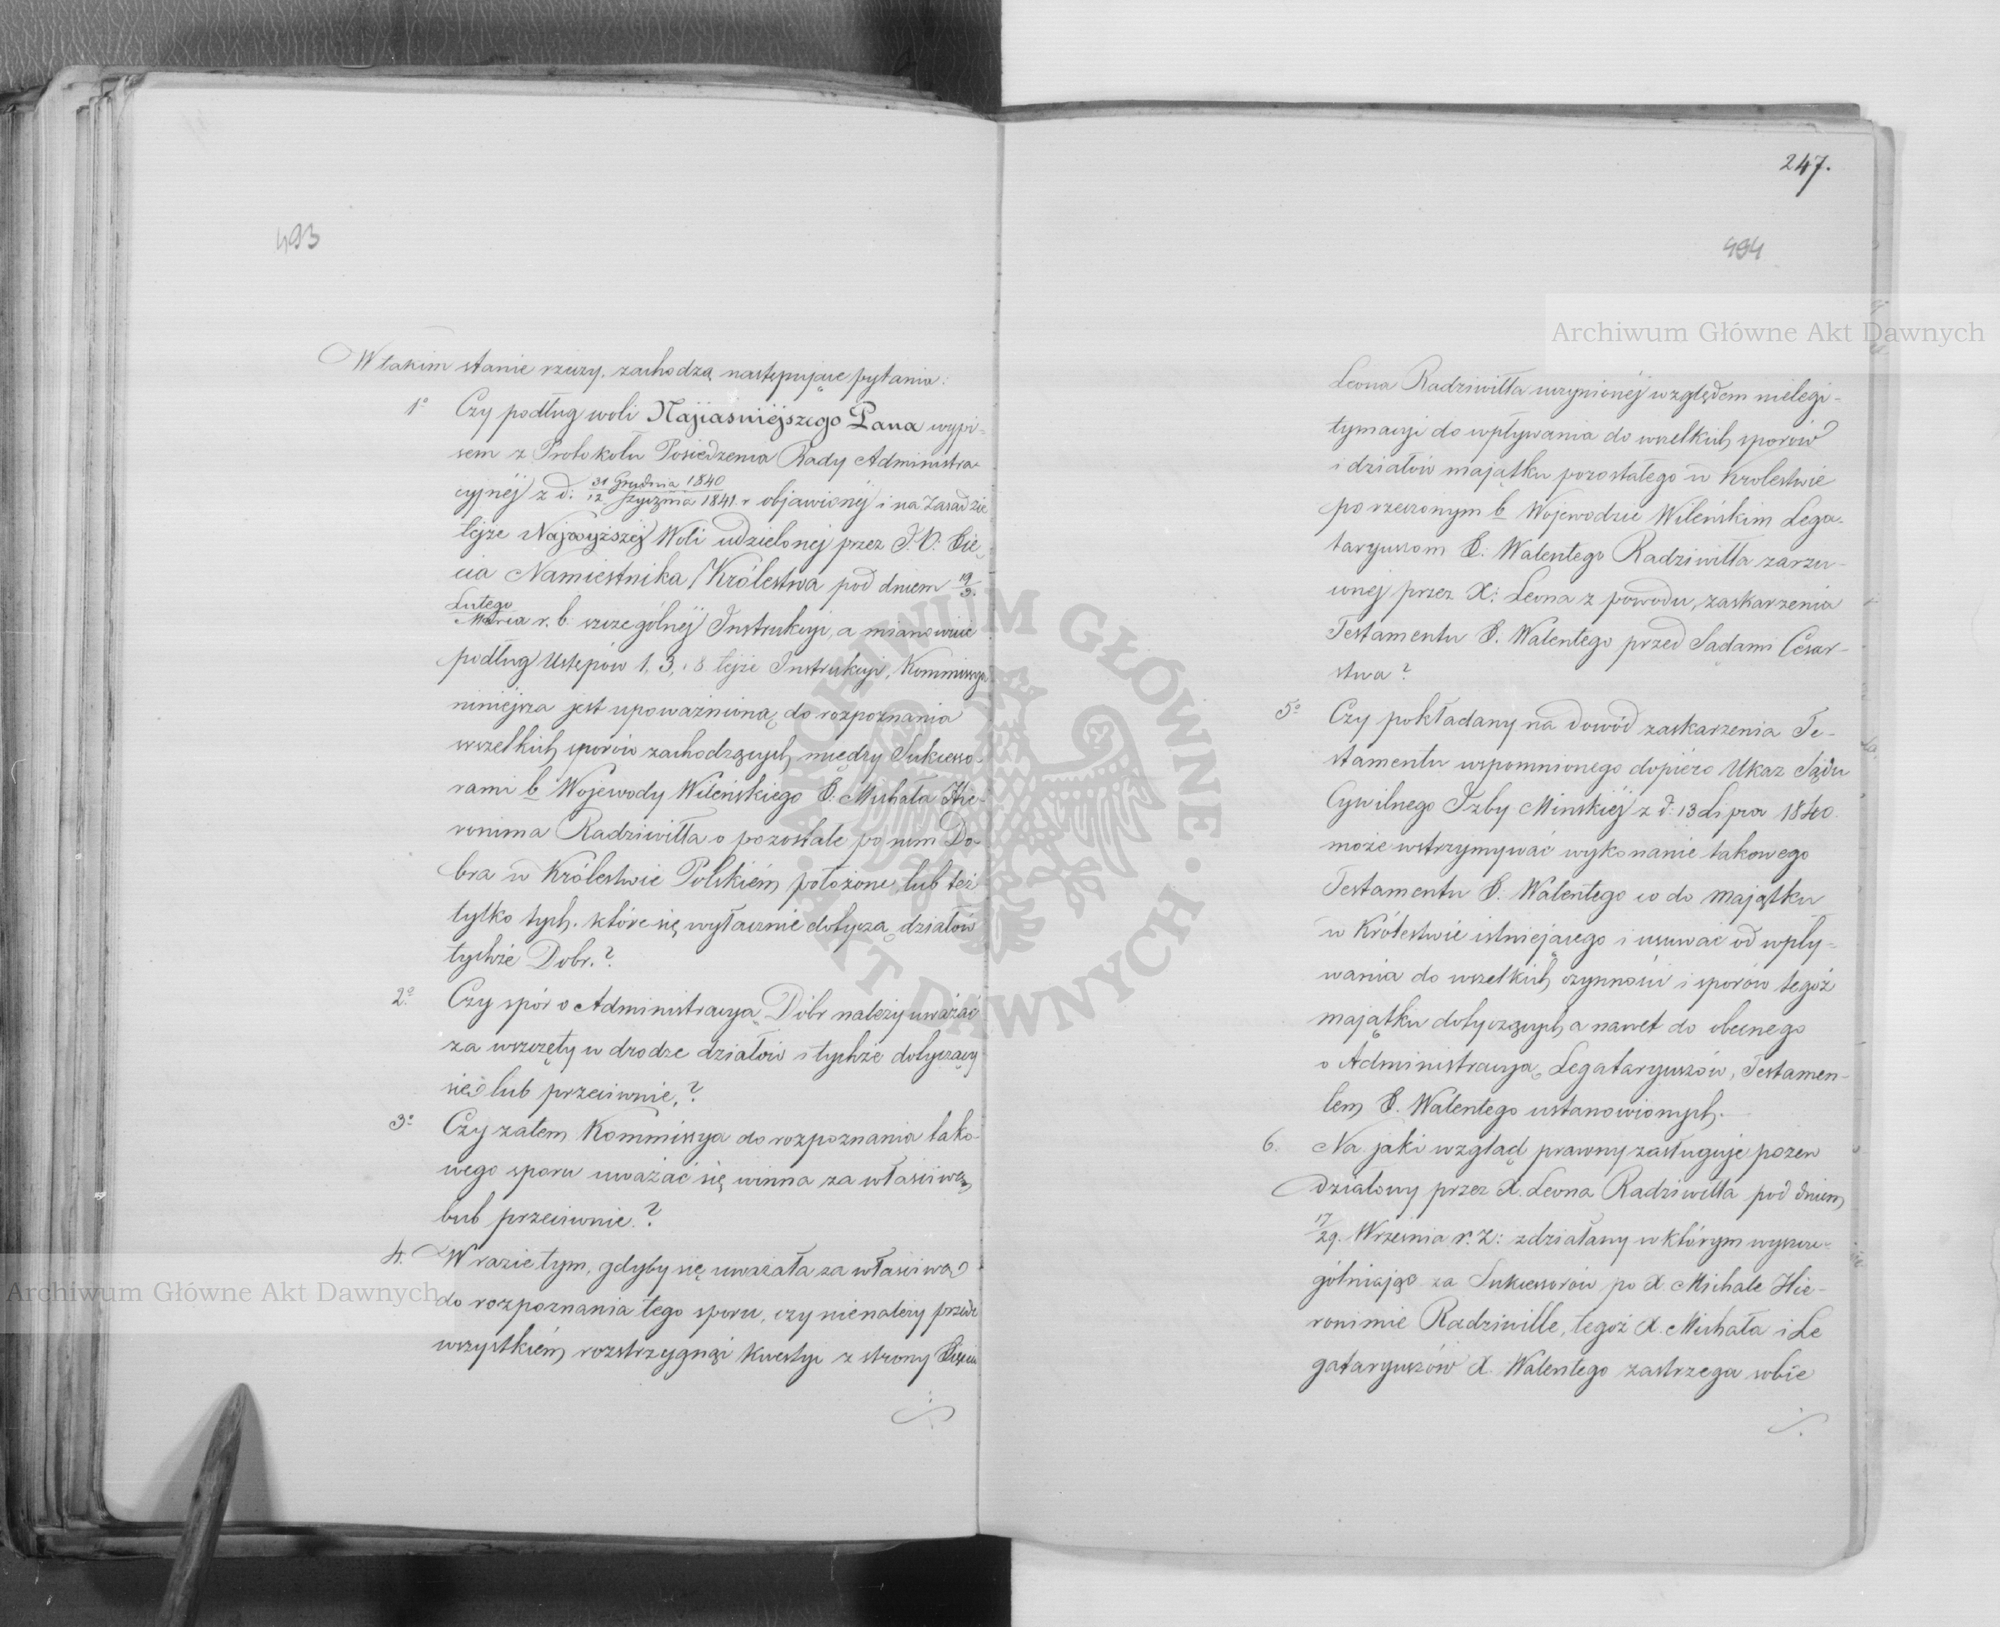 493
W takim stanie rzeczy, zachodzą następujące pytania:
1° Czy podług woli Najjaśniejszego Pana wypi-
sem z Protokołu Posiedzenia Rady Administra-
cyjnéj z d. 31 Grudnia 1840 / 12 Stycznia 1841. r objawionéj i na zasadzie
tejże Najwyższéj Woli udzielonej przez J. O. Xię-
cia Namiestnika Królestwa pod dniem 19/3.
Lutego / Marca r. b. szczególnéj Instrukcyi, a mianowicie
podług Ustępów 1, 3, i 8 tejże Instrukcyi, Kommissya
niniejsza jest upoważnioną do rozpoznania
wszelkich sporów zachodzących między Sukcesso-
rami b Wojewody Wileńskiego X. Michała Hie-
ronima Radziwiłła o pozostałe po nim Do-
bra w Królestwie Polskiém położone, lub też
tylko tych, które się wyłącznie dotyczą działów
tychże Dobr.?
2° Czy spór o Administracyą Dóbr należy uważać
za wszczęty w drodze działów i tychże dotyczący
się lub przeciwnie,?
3° Czy zatem Kommissya do rozpoznania tako-
wego sporu uważać się winna za właściwą,
lub przeciwnie.?
4. W razie tym, gdyby się uważała za właściwą
do rozpoznania tego sporu, czy nienależy przede
wszystkiém rozstrzygnąć kwestyi z strony Xięcia
247.
494
Leona Radziwiłła uczynionéj względem nielegi-
tymacyi do wpływania do wszelkich sporów
i działów majątku pozostałego w Królestwie
po rzeczonym b Wojewodzie Wileńskim Lega-
taryuszom X. Walentego Radziwiłła zarzu-
conej przez X. Leona z powodu, zaskarżenia
Testamentu X. Walentego przed Sądami Cesar-
stwa?
5° Czy pokładany na dowód zaskarżenia Te-
stamentu wspomnionego dopiéro Ukaz Sądu
Cywilnego Izby Mińskiéj z d. 13 Lipca 1840.
może wstrzymywać wykonanie takowego
Testamentu X. Walentego co do majątku
w Królestwie istniejącego i usuwać od wpły-
wania do wszelkich czynności i sporów tegoż
majątku dotyczących, a nawet do obecnego
o Administracyą Legataryuszów, Testamen-
tem X. Walentego ustanowionych.
6. Na jaki wzgląd prawny zasługuje pozew
działowy przez X. Leona Radziwiłła pod dniem
17/29. Września r. z: zdziałany w którym wyszcze-
gólniając za Sukcessorów po X. Michale Hie-
ronimie Radziwille, tegoż X. Michała i Le
gataryuszów X. Walentego zastrzega sobie
Archiwum Główne Akt Dawnych
Archiwum Główne Akt Dawnych
ARCHIWUM GŁÓWNE · AKT DAWNYCH ·